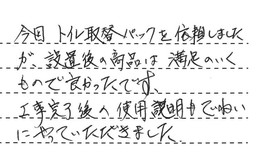 今回トイレ取替パックを依頼しました
が、設置後の商品は満足のいく
もので良かったです。
工事完了後の使用説明もていねい
にやっていただきました。